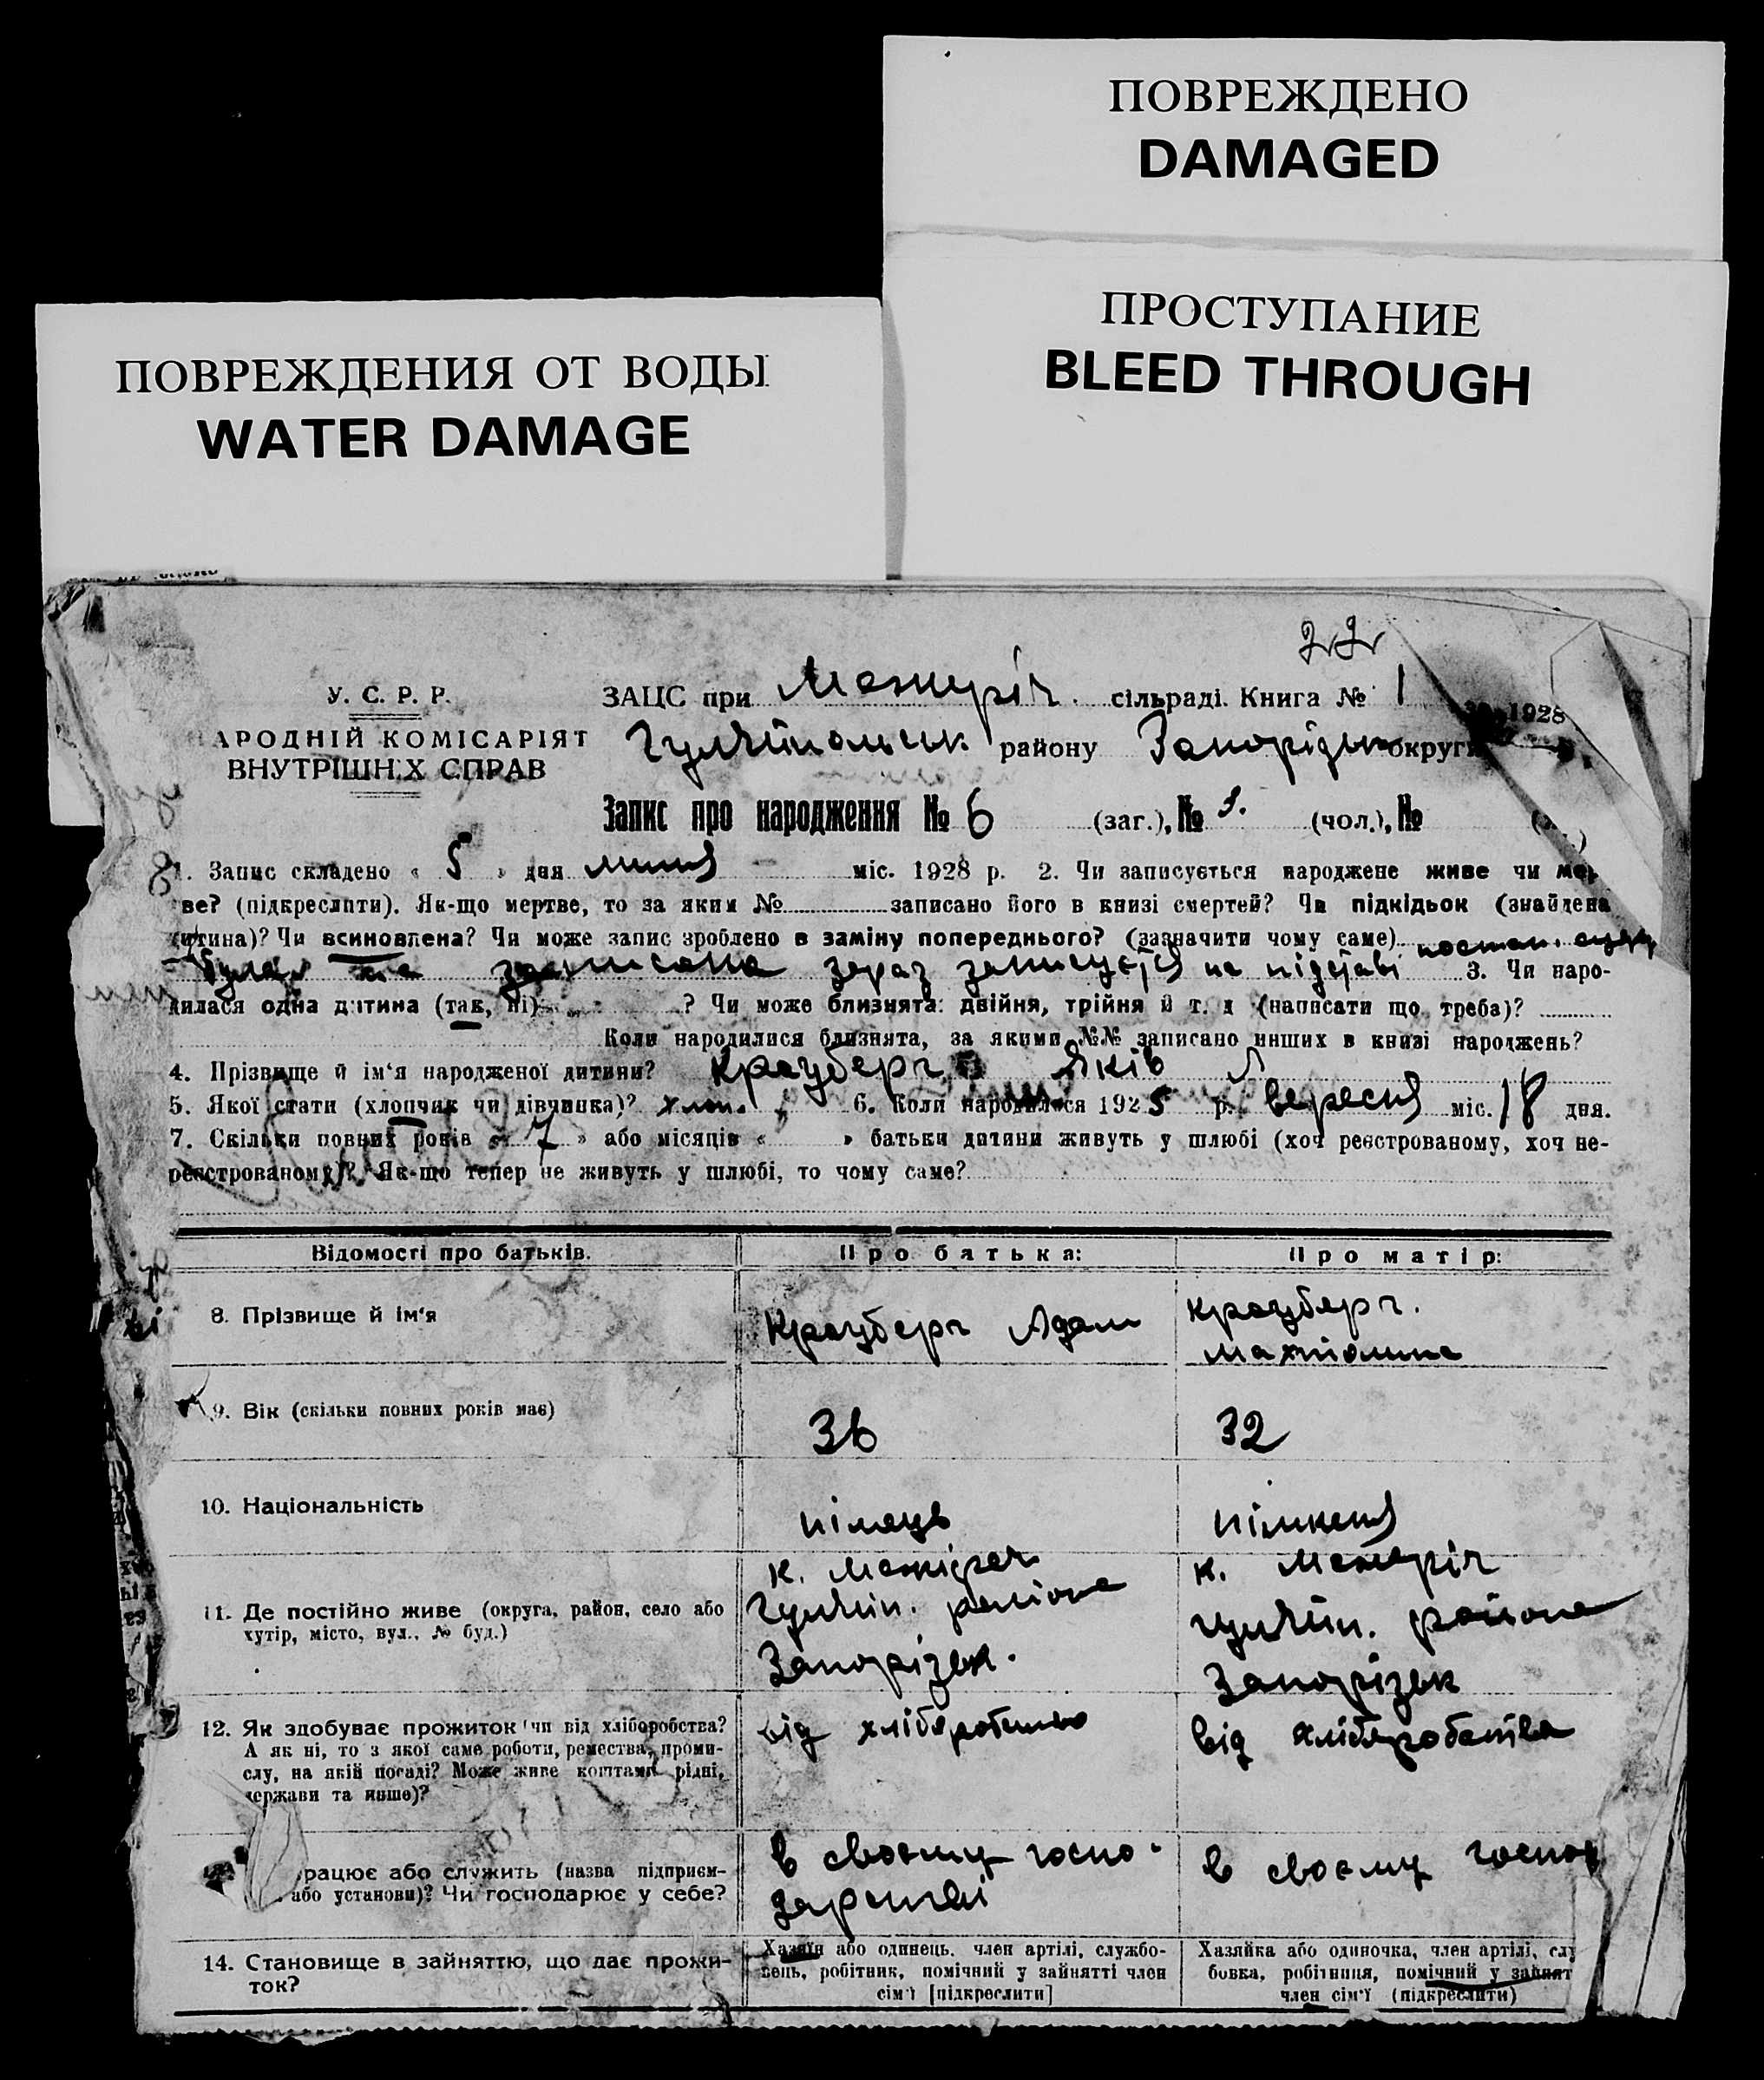 ПОВРЕЖДЕНО
DAMAGED
ПРОСТУПАНИЕ
BLEED THROUGH
ПОВРЕЖДЕНИЯ ОТ ВОДЫ
WATER DAMAGE
22
У. С. Р. Р.
АРОДНІЙ КОМІСАРІЯТ
ВНУТРІШНІХ СПРАВ
ЗАЦС при Межиріч. сільраді. Книга № 1 1928
району Запорізьк округи
Запис про народження № 6 (заг.), № 3. (чол.), №
1. Запис складено « 5 » дня липня міс. 1928 р. 2. Чи записується народжене живе чи мер
ве? (підкреслити). Як-що мертве, то за яким № записано його в книзі смертей? Чи підкідьок (знайдена
дитина)? Чи всиновлена? Чи може запис зроблено в заміну попереднього? (зазначити чому саме) постан. суду
була не записана зараз записується на підставі 3. Чи наро-
дилася одна дитина (так, ні) ? Чи може близнята: двійня, трійня й т. д (написати що треба)?
Коли народилися близнята, за якими №№ записано инших в книзі народжень?
4. Прізвище й ім'я народженої дитини? Крауберг Яків А
5. Якої стати (хлопчик чи дівчинка)? хлоп. 6. Коли народилося 1925 р. вересня міс. 18 дня.
7. Скільки повних років « 7 » або місяців « » батьки дитини живуть у шлюбі (хоч реєстрованому, хоч не-
реєстрованому)? Як-що тепер не живуть у шлюбі, то чому саме?
Відомості про батьків. Про батька: Про матір:
8. Прізвище й ім'я
Крауберг Адам
Крауберг.
9. Вік (скільки повних років має)
36
32
10. Національність
німець
німкеня
11. Де постійно живе (округа, район, село або
хутір, місто, вул., № буд.)
к. Межіреч
Гуляйп. района
Запорізьк.
к. Межиріч
Гуляйп. района
Запорізьк
12. Як здобуває прожиток чи від хліборобства?
А як ні, то з якої саме роботи, ремества, проми-
слу, на якій посаді? Може живе коштами рідні,
держави та инше)?
від хліборобства
від хліборобства
рацює або служить (назва підприєм-
або установи)? Чи господарює у себе?
в своєму госпо-
дарстві
в своєму господ
14. Становище в зайняттю, що дає прожи-
ток?
Хазяїн або одинець. член артілі, службо-
вець, робітник, помічний у зайнятті член
сім'ї [підкреслити]
Хазяйка або одиночка, член артілі, слу
бовка, робітниця, помічний у зайнят
член сім'ї (підкреслити)